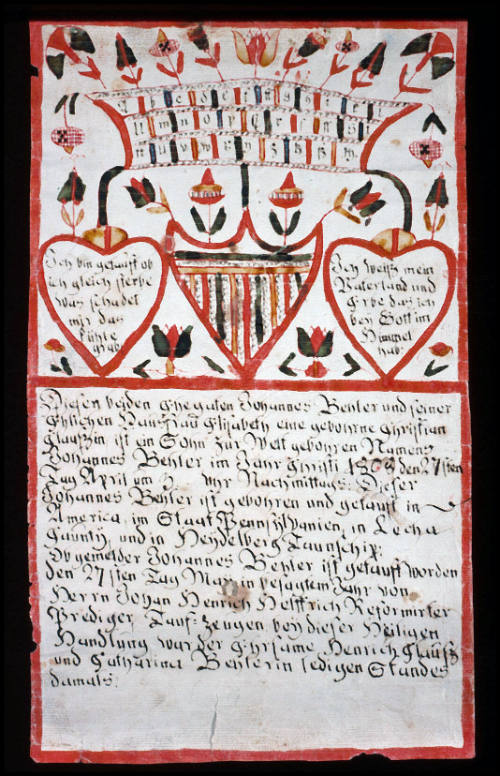 Ich bin getauft ob
ich gleich sterbe
was schadet
mir das
kühle
grab
Ich weiß mein
Vaterland und
Erbe das ich
bey Gott im
Himmel
hab:
Diesen beiden Ehegaten Johannes Behler und seiner
Ehlichen Hausfrau Elisabeth eine gebohrne Christian
Claussin ist ein Sohn zur Welt gebohren Namens
Johannes Behler im Jahr Christi 1803 den 27 sten
Tag April um 3 Uhr Nachmittags: Dieser
Johannes Behler ist gebohren und getauft in
America im Staat Pennsylvanien, in Lecha
Caunty, und in Heydelberg Taunschip:
Ob gemelder Johannes Behler ist getauft worden
den 27 sten Tag May in besagtem Jahr von
Herrn Johan Henrich Helffrich Reformirter
Prediger, Tauf-Zeugen bey dieser Heiligen
Handlung war der Ehrsame Henrich Clauß
und Catharina Behlerin ledigen Standes
damals: